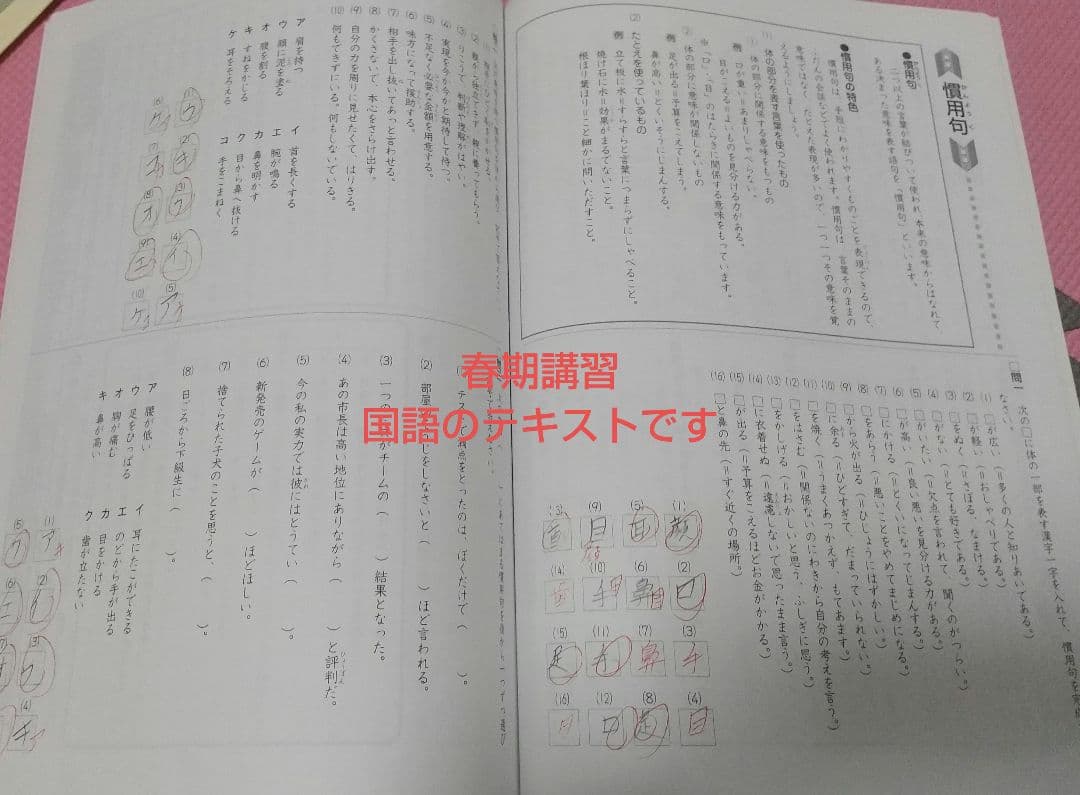 慣用句
●慣用句
二つ以上の言葉が結びついて使われ、本来の意味からはなれて
ある決まった意味を表す語句を「慣用句」といいます。
●慣用句の特色
慣用句は、手短にわかりやすくものごとを表現できるので、
ふだんの会話などでよく使われます。慣用句は、言葉そのままの
意味ではなく、たとえた表現が多いので、一つ一つその意味を覚
えるようにしましょう。
(1) 体の部分を表す言葉を使ったもの
① 体の部分に関係する意味をもつもの
例 口が重い＝あまりしゃべらない。
目がこえる＝よいものを見分ける力がある。
※「口」、「目」のはたらきに関係する意味をもっています。
② 体の部分に意味が関係しないもの
例 足が出る＝予算をこえてしまう。
鼻が高い＝とくいそうにじまんする。
(2) たとえを使っているもの
例 立て板に水＝すらすらと言葉につまらずにしゃべること。
焼け石に水＝効果がまるでないこと。
根ほり葉ほり＝こと細かに問いただすこと。
問一 次の□に体の一部を表す漢字一字を入れて、慣用句を完
なさい。
(1) □が広い（＝多くの人と知りあいである。）
(2) □が軽い（＝おしゃべりである。）
(3) □をぬく（＝さぼる、なまける。）
(4) □がない（＝とても好きである。）
(5) □がいたい（＝欠点を言われて、聞くのがつらい。）
(6) □が高い（＝良い悪いを見分ける力がある。）
(7) □にかける（＝とくいになってじまんする。）
(8) □をあらう（＝悪いことをやめてまじめになる。）
(9) □から火が出る（＝ひじょうにはずかしい。）
(10) □に余る（＝ひどすぎて、だまっていられない。）
(11) □を焼く（＝うまくあつかえず、もてあます。）
(12) □をはさむ（＝関係ないのにわきから自分の考えを言う。）
(13) □をかしげる（＝おかしいと思う、ふしぎに思う。）
(14) □に衣着せぬ（＝遠慮しないで思ったまま言う。）
(15) □が出る（＝予算をこえるほどお金がかかる。）
(16) □と鼻の先（＝すぐ近くの場所。）
(1) 顔
(2) 口
(3) 手
(4) 目
(5)
(6) 鼻 目
(7) 鼻
(8) 足
(9) 目
(10) 手
(11) 手
(12) 口
(14) 歯
(15) 足
(16) 目
(3) りこうで、判断や理解がはやい。
(4) 実現を今か今かと期待して待つ。
(5) 不足なく必要な金額を用意する。
(6) 味方になって援助する。
(7) 相手を出し抜いてあっと言わせる。
(8) かくさないで、本心をさらけ出す。
(9) 自分の力を周りに見せたくて、はりきる。
(10) 何もできずにいる。何もしないでいる。
ア 肩を持つ
イ 首を長くする
ウ 顔に泥を塗る
エ 腕が鳴る
オ 腹を割る
カ 鼻を明かす
キ すねをかじる
ク 目から鼻へ抜ける
ケ 耳をそろえる
コ 手をこまねく
ウ
キ
(3) ク
(4) イ
(5) ア
(6) ケ
(8) オ
(9) エ
(10) ケ
(1) テストで満点をとったのは、ぼくだけで（　）。
(2) 部屋のそうじをしなさいと（　）ほど言われる。
(3) 一つの
がチームの（　）結果となった。
(4) あの市長は高い地位にありながら（　）と評判だ。
(5) 今の私の実力では彼にはとうてい（　）。
(6) 新発売のゲームが（　）ほどほしい。
(7) 捨てられた子犬のことを思うと、（　）。
(8) 日ごろから下級生に（　）。
ア 腰が低い
イ 耳にたこができる
ウ 足をひっぱる
エ のどから手が出る
オ 胸が痛む
カ 目をかける
キ 鼻が高い
ク 歯が立たない
(1) ア
(2) イ
(3) ウ
(4) キ
(5) ク
(6) エ
春期講習
国語のテキストです